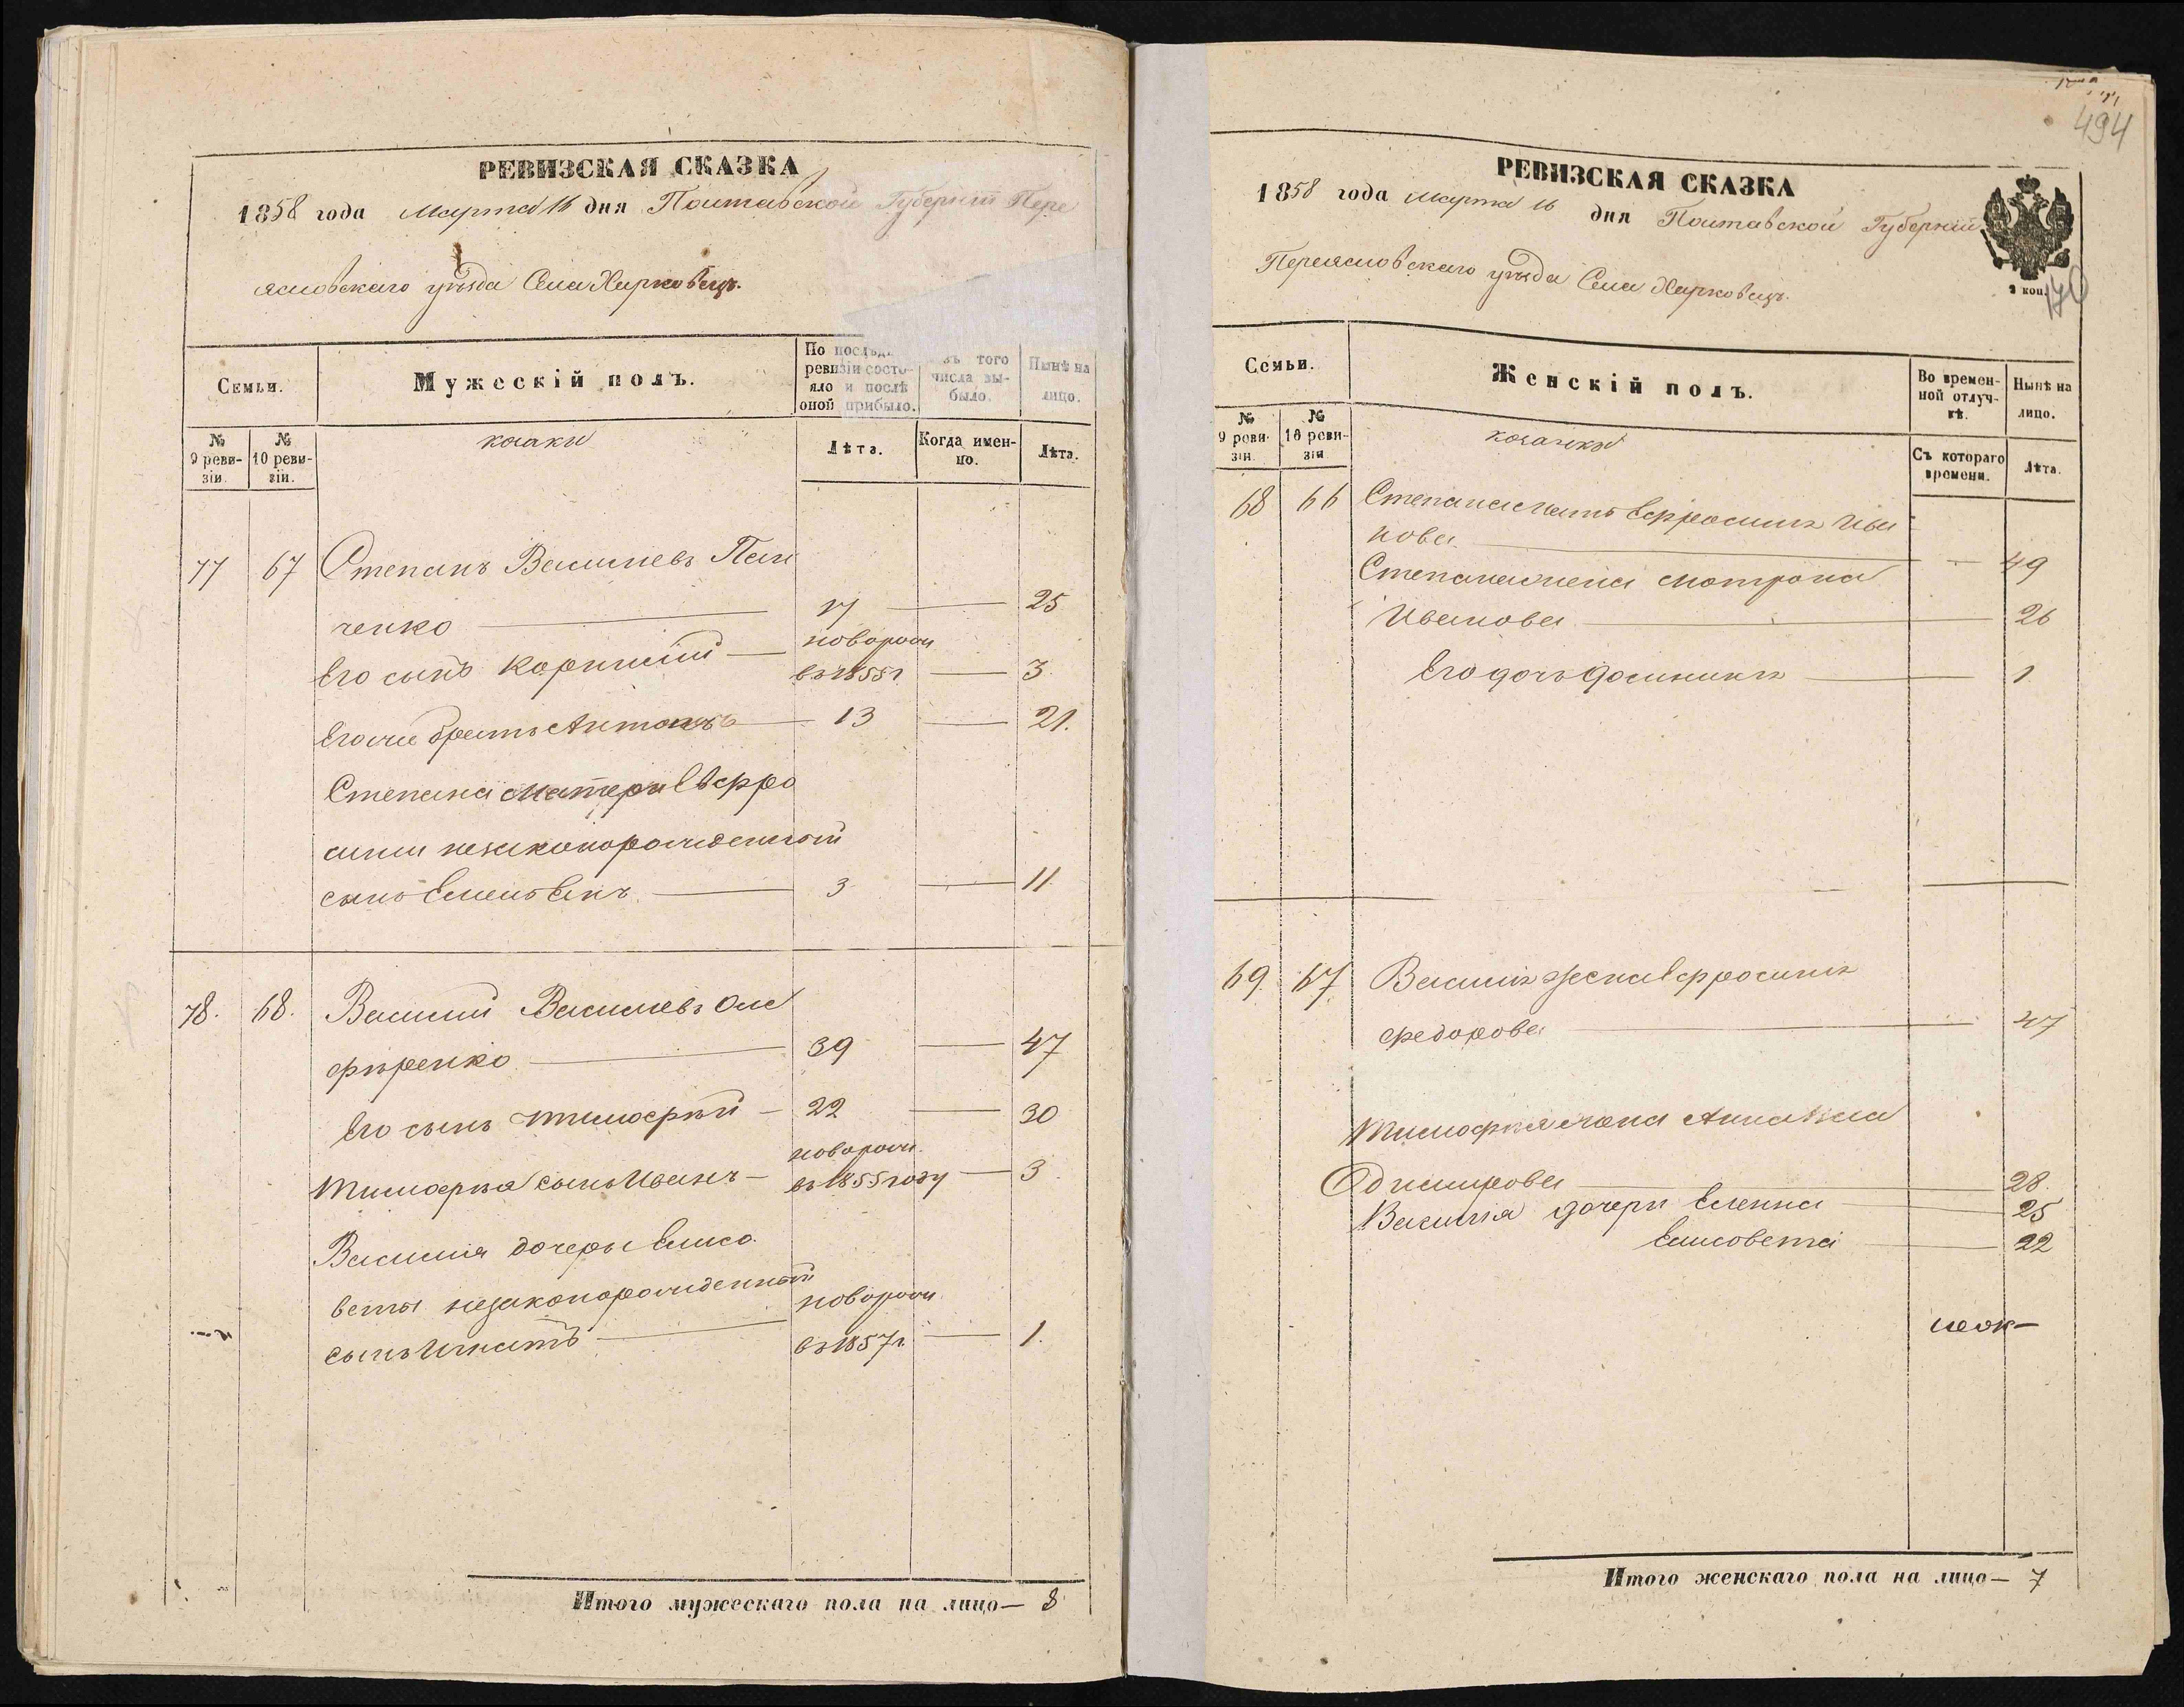 РЕВИЗСКАЯ СКАЗКА
1858 года Марта 16 дня Полтавской Губерніи Пере
ясловскаго уѣзда Села Харковецъ.
Семьи.
Мужескій полъ.
По послѣд
ревизіи состо-
яло и послѣ
оной прибыло.
зъ того
числа вы-
было.
Нынѣ на
лицо.
№ 9 реви-зіи.
№ 10 реви-зіи.
козаки
Лѣта.
Когда имен-но.
Лѣта.
77 67 Степанъ Васильевъ Пан
ченко 17 25
Его сынъ Корнилій новорож
въ 1855 г 3
Егоже братъ Антонъ 13 21.
Степана матери Евфро
синіи незаконорожденный
сынъ 3 11.
78. 68. Василій Васильевъ Оле
фѣренко 39 47
Его сынъ Тимофѣй 22 30
новорож.
Тимофѣя сынъ Иванъ въ 1855 году 3
Василія дочеры Елисо
веты незаконорожденный новорож
сынъ Игнатъ въ 1857 г. 1.
Итого мужескаго пола на лицо— 8
494
РЕВИЗСКАЯ СКАЗКА
1858 года Марта 16 дня Полтавской Губерніи
Переясловскаго уѣзда Села Харковецъ.
2 коп.
Семьи.
Женскій полъ.
Во времен-
ной отлуч-
кѣ.
Нынѣ на
лицо.
№ 9 реви-зіи.
№ 10 реви-зіи
козачки
Съ котораго
времени.
Лѣта.
68 66 Степана мать Евфросинія Ива
нова 49
Степана жена Мотрона
Иванова 26
Его дочь Домникія 1
69. 67 Василія жена Евфросинія
Федорова 47
Тимофѣя жена Анна Вла
димирова 28.
Василія дочери Еленна 25
Елисовета 22
Итого женскаго пола на лицо— 7